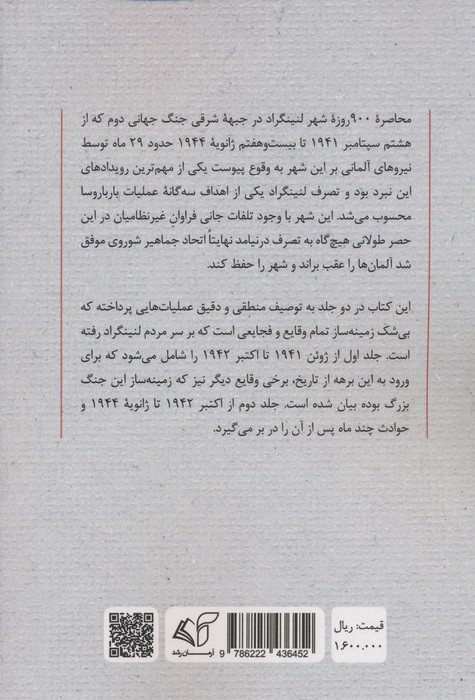 محاصرهٔ ۹۰۰روزهٔ شهر لنینگراد در جبههٔ شرقی جنگ جهانی دوم که از
هشتم سپتامبر ۱۹۴۱ تا بیست‌وهفتم ژانویهٔ ۱۹۴۴ حدود ۲۹ ماه توسط
نیروهای آلمانی بر این شهر به وقوع پیوست یکی از مهم‌ترین رویدادهای
این نبرد بود و تصرف لنینگراد یکی از اهداف سه‌گانهٔ عملیات بارباروسا
محسوب می‌شد. این شهر با وجود تلفات جانی فراوانِ غیرنظامیان در این
حصر طولانی هیچ‌گاه به تصرف درنیامد نهایتاً اتحاد جماهیر شوروی موفق
شد آلمان‌ها را عقب براند و شهر را حفظ کند.
این کتاب در دو جلد به توصیف منطقی و دقیق عملیات‌هایی پرداخته که
بی‌شک زمینه‌ساز تمام وقایع و فجایعی است که بر سر مردم لنینگراد رفته
است. جلد اول از ژوئن ۱۹۴۱ تا اکتبر ۱۹۴۲ را شامل می‌شود که برای
ورود به این برهه از تاریخ، برخی وقایع دیگر نیز که زمینه‌ساز این جنگ
بزرگ بوده بیان شده است. جلد دوم از اکتبر ۱۹۴۲ تا ژانویهٔ ۱۹۴۴ و
حوادث چند ماه پس از آن را در بر می‌گیرد.
آرمان رشد
9 786222 436452
قیمت: ریال
۱.۶۰۰.۰۰۰